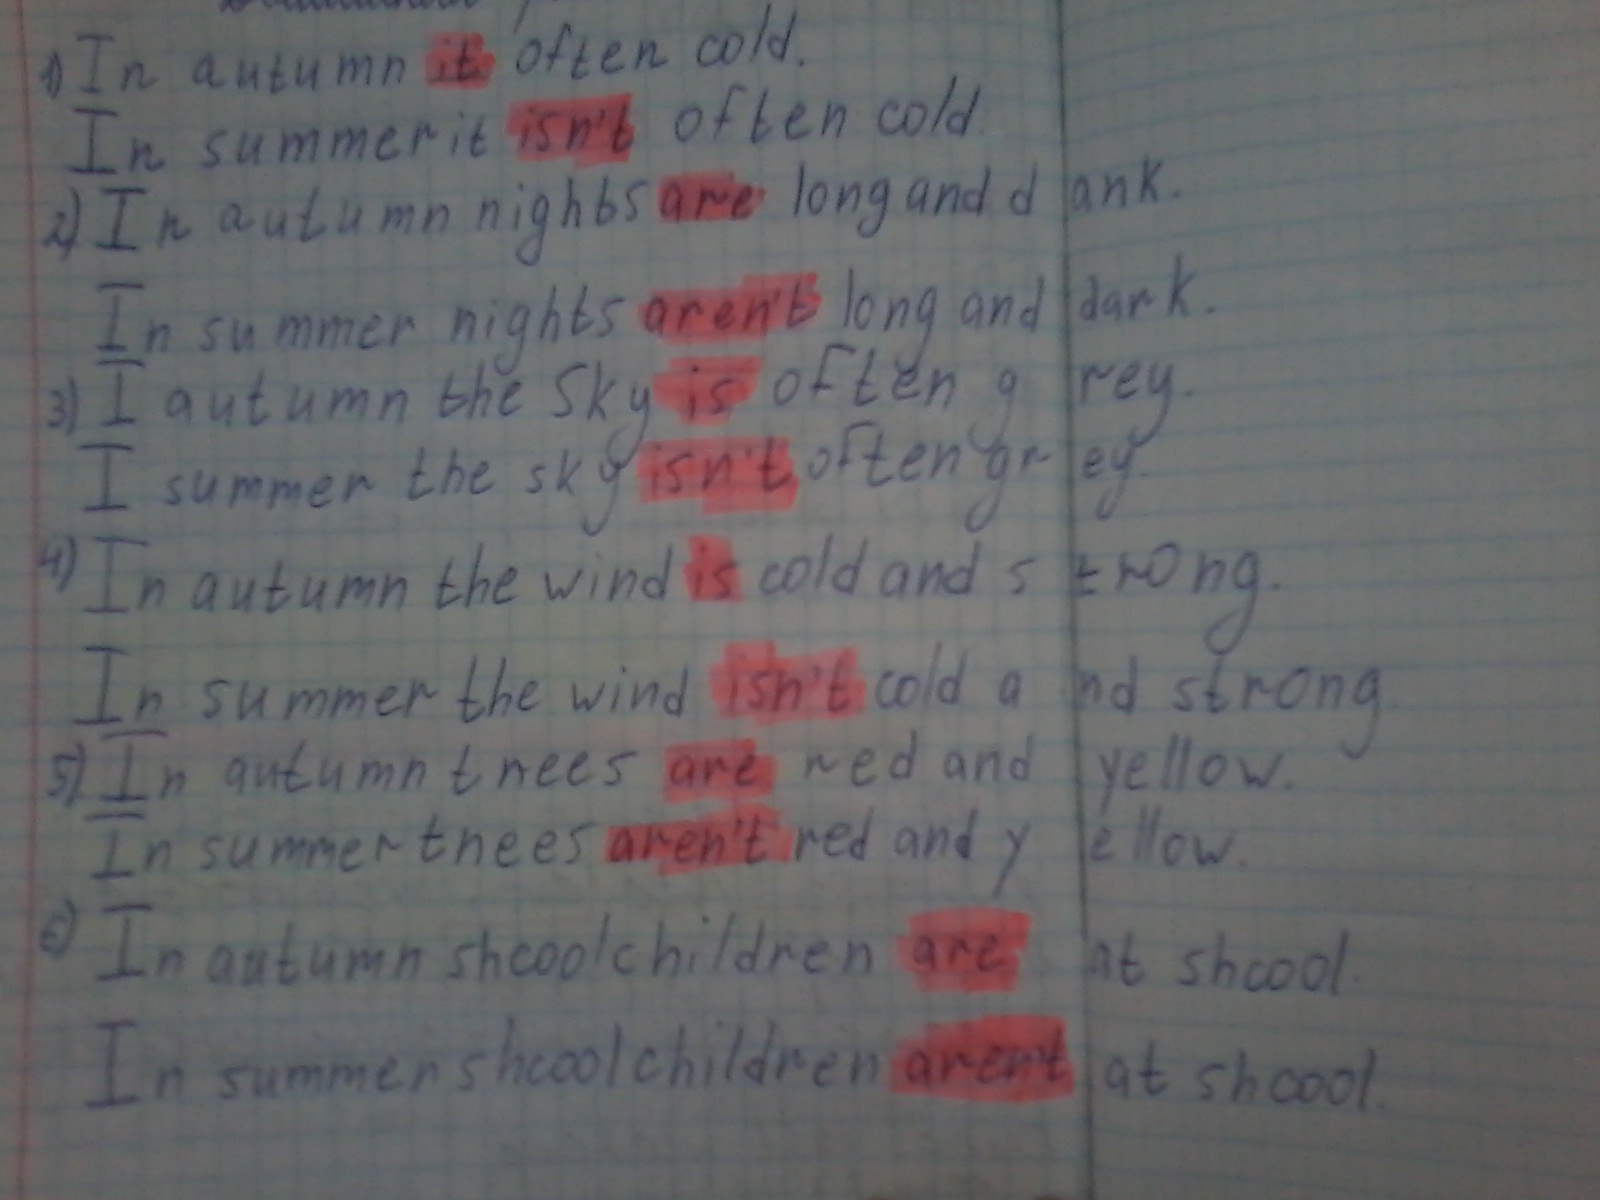 1) In autumn it often cold.
In summer it isn't often cold
2) In autumn nights are long and dank.
In summer nights aren't long and dark.
3) I autumn the Sky is often grey.
I summer the sky isn't often grey.
4) In autumn the wind is cold and strong.
In summer the wind isn't cold and strong
5) In autumn tnees are red and yellow.
In summer tnees aren't red and yellow.
6) In autumn shcoolchildren are at shcool.
In summer shcoolchildren aren't at shcool.